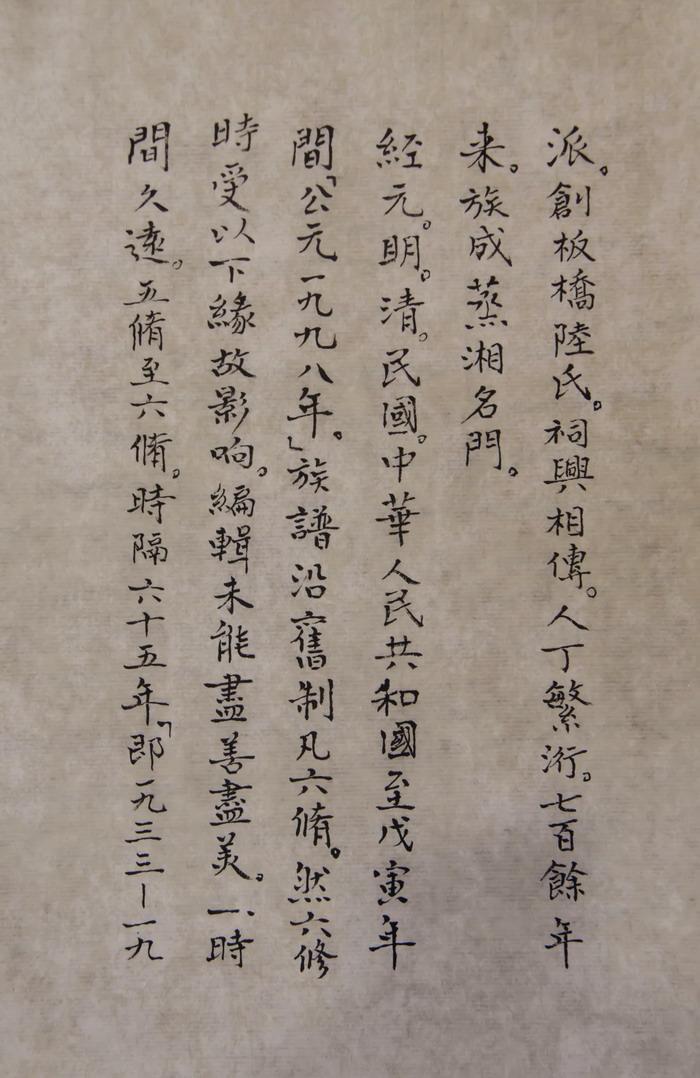 派。創板橋陸氏。祠興相傳。人丁繁洐。七百餘年
来。族成蒸湘名門。
經元。明。清。民國。中華人民共和國至戊寅年
間「公元一九九八年。」族譜沿舊制凡六脩。然六修
時受以下緣故影响。編輯未能盡善盡美。一、時
間久遠。五脩至六脩。時隔六十五年「即一九三三—一九